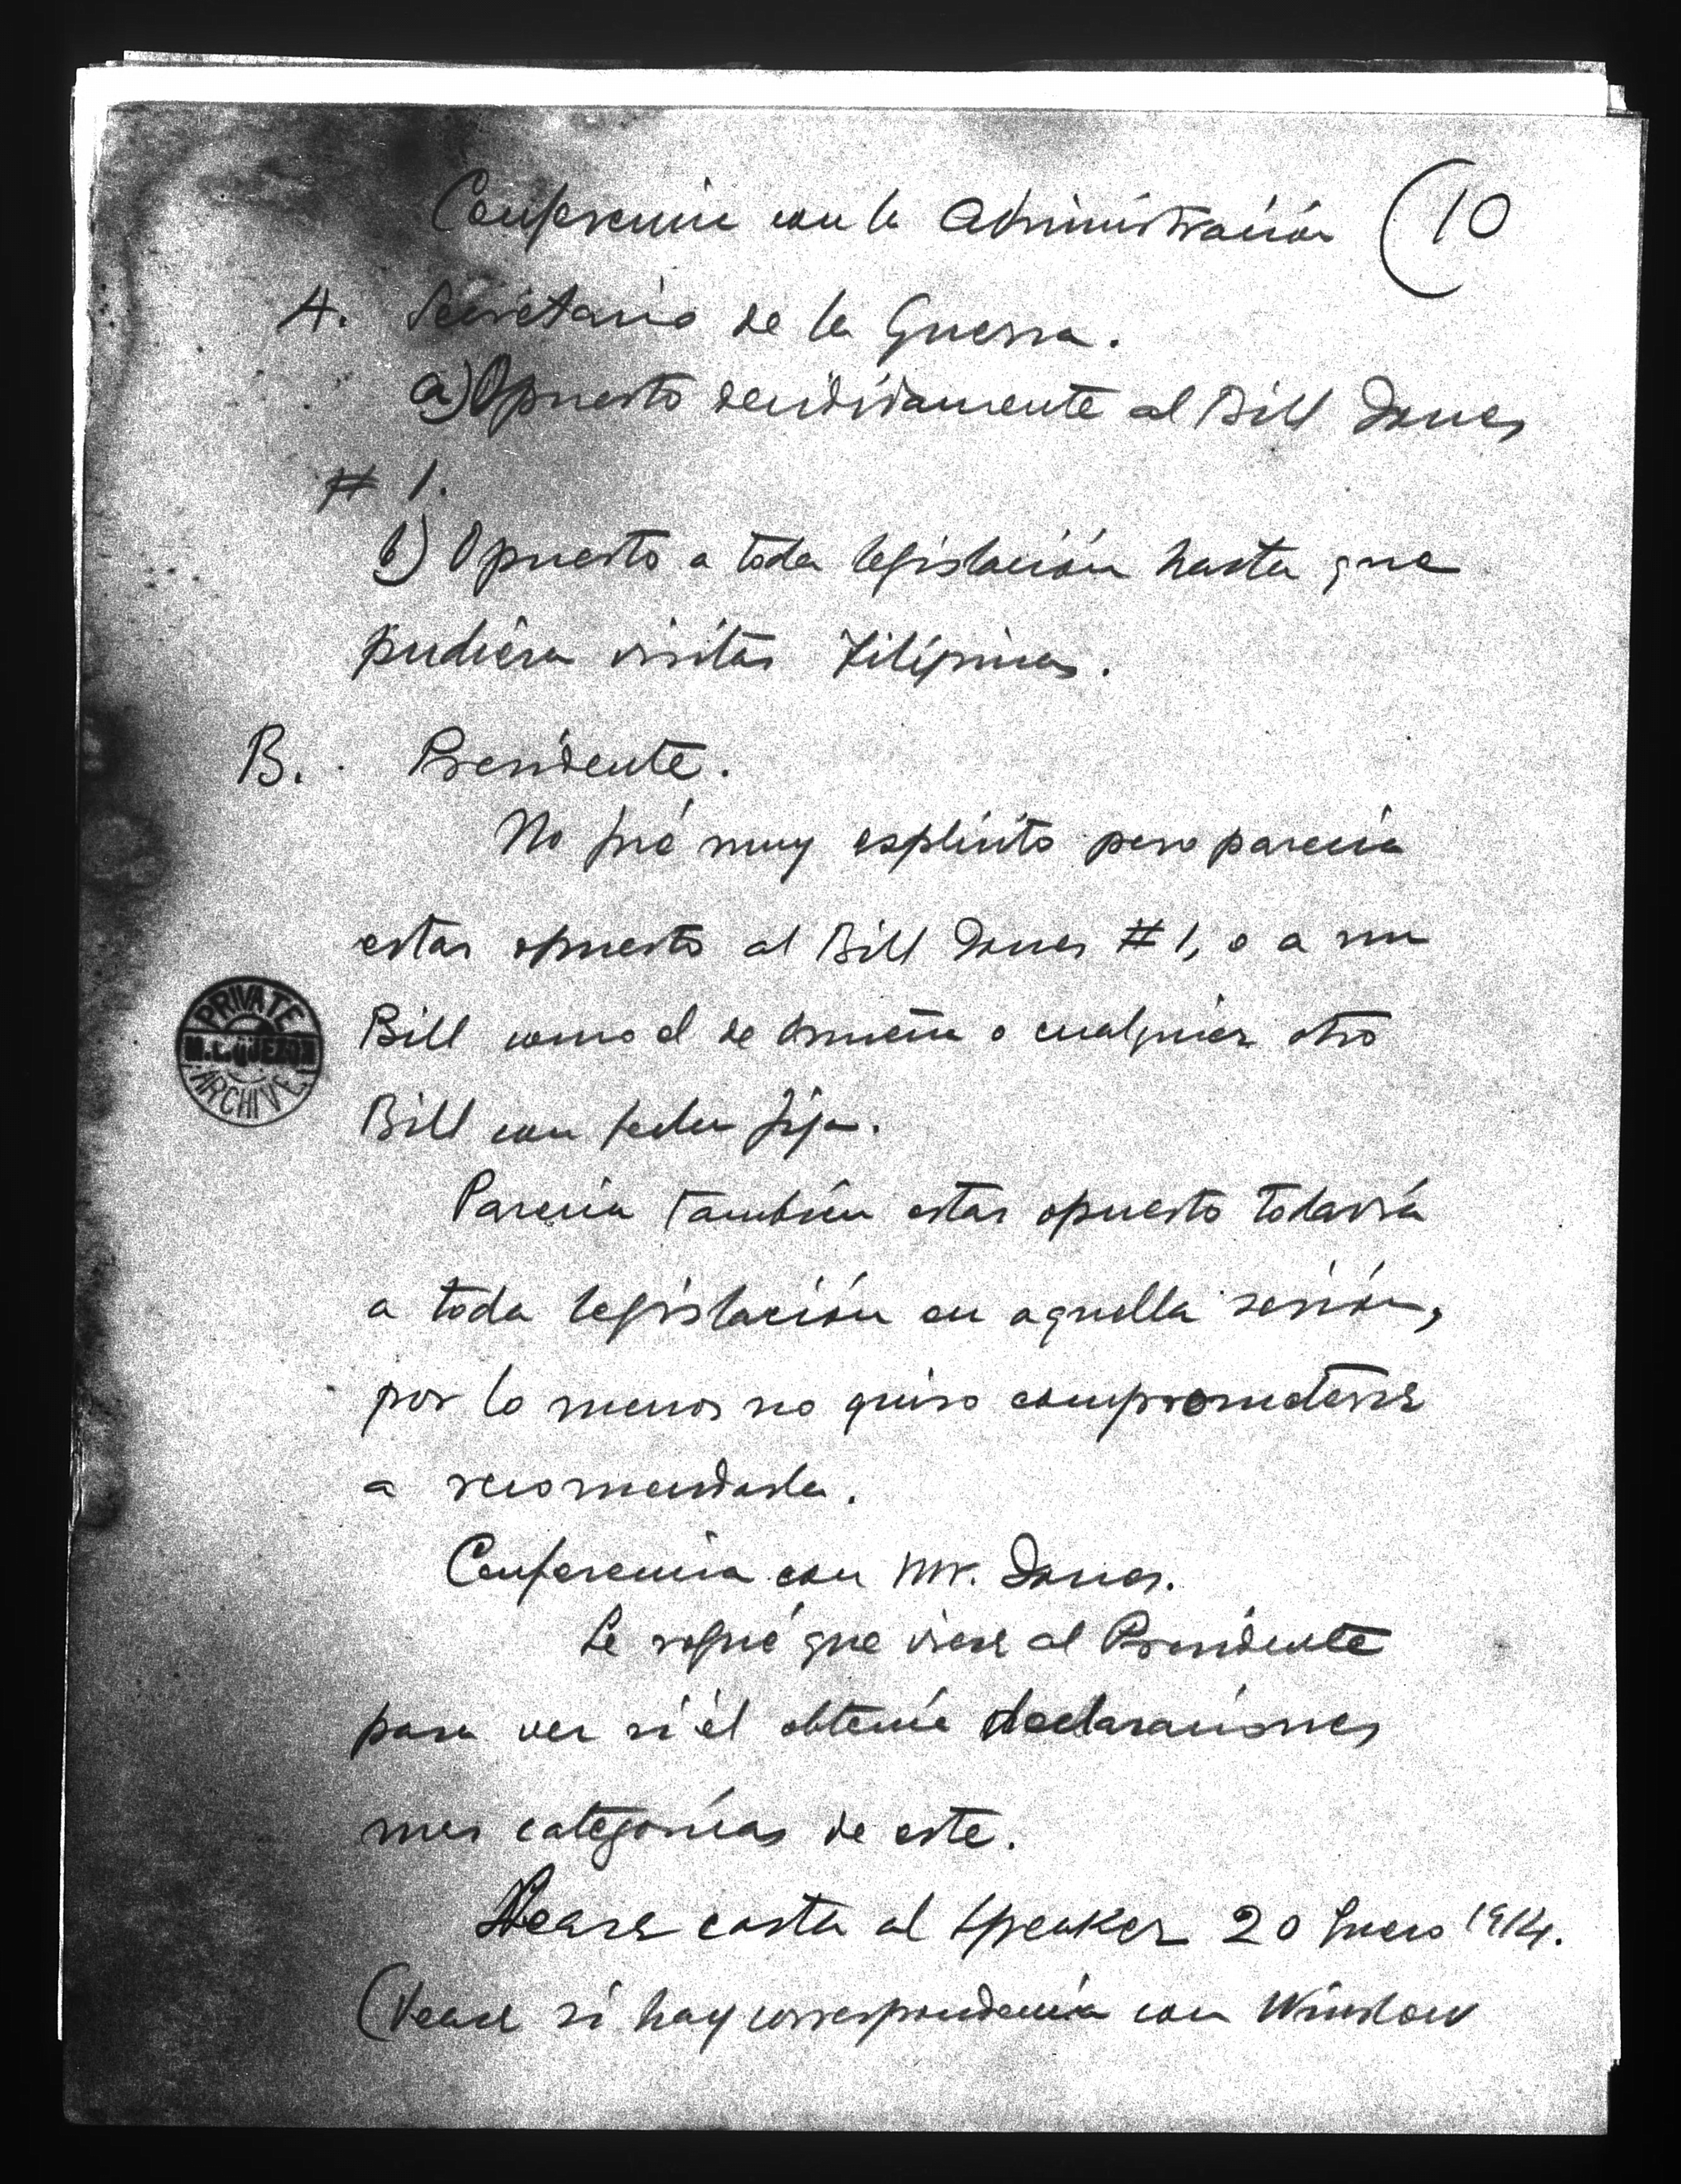 Conferencia con la Administración (10
A. Secretario de la Guerra.
a) Opuesto decididamente al Bill Jones
# 1.
b) Opuesto a toda legislación hasta que
pudiera visitar Filipinas.
B. Presidente.
No fué muy esplicito pero parecia
estar opuesto al Bill Jones #1, o a un
Bill como el de Osmeña o cualquier otro
Bill con fecha fija.
Parecia tambien estar opuesto todavía
a toda legislación en aquella sesión,
por lo menos no quiso comprometerse
a recomendarla.
Conferencia con Mr. Jones.
Le rogué que viese al Presidente
para ver si él obtenía declaraciones
mas categorícas de este.
Vease carta al Speaker 20 Enero 1914.
(Vease si hay correspondencia con Winslow
PRIVATE
M.L. QUEZON
ARCHIVE